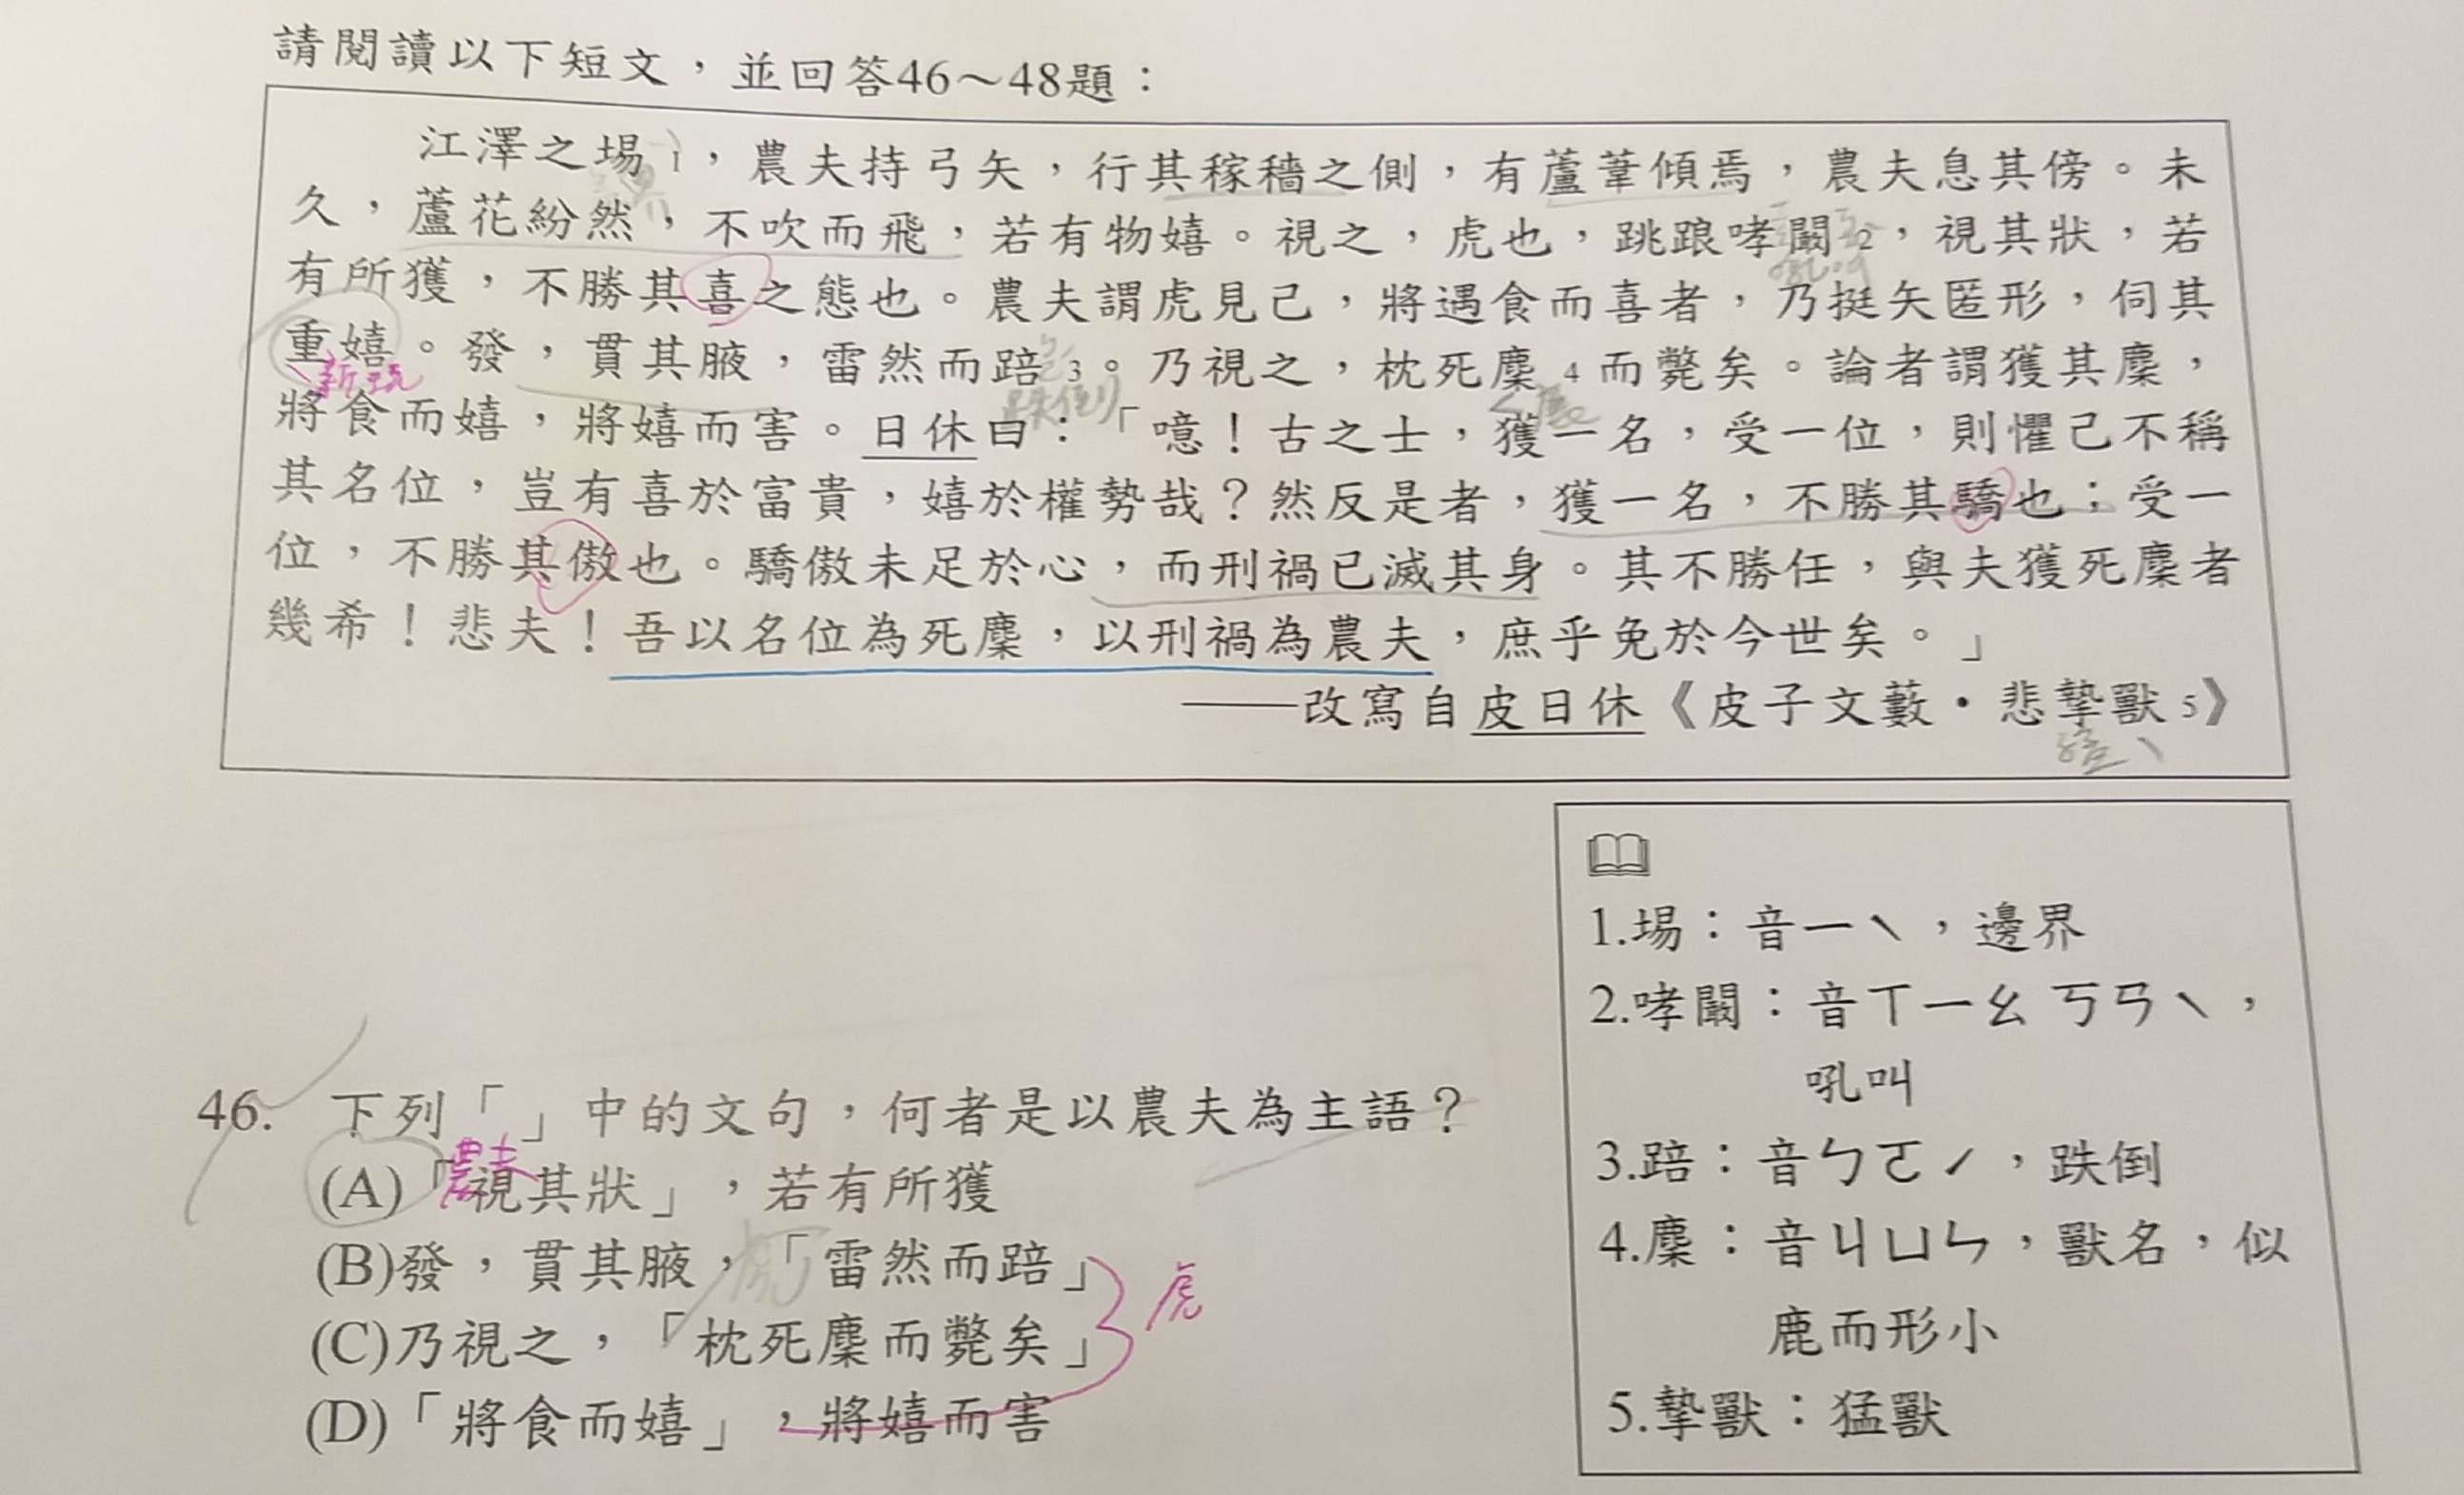 請閱讀以下短文，並回答46～48題：
江澤之埸1，農夫持弓矢，行其稼穡之側，有蘆葦傾焉，農夫息其傍。未
久，蘆花紛然，不吹而飛，若有物嬉。視之，虎也，跳踉哮闞2，視其狀，若
有所獲，不勝其喜之態也。農夫謂虎見己，將遇食而喜者，乃挺矢匿形，伺其
重嬉。發，貫其腋，雷然而踣3。乃視之，枕死麇4而斃矣。論者謂獲其麇，
將食而嬉，將嬉而害。日休曰：「噫！古之士，獲一名，受一位，則懼己不稱
其名位，豈有喜於富貴，嬉於權勢哉？然反是者，獲一名，不勝其驕也；受一
位，不勝其傲也。驕傲未足於心，而刑禍已滅其身。其不勝任，與夫獲死麇者
幾希！悲夫！吾以名位為死麇，以刑禍為農夫，庶乎免於今世矣。」
——改寫自皮日休《皮子文藪・悲摯獸5》
吼叫
跌倒
46. 下列「 」中的文句，何者是以農夫為主語？
農夫
(A)「視其狀」，若有所獲
(B)發，貫其腋，「雷然而踣」
虎
(C)乃視之，「枕死麇而斃矣」
(D)「將食而嬉」，將嬉而害
虎
1.埸：音ㄧˋ，邊界
2.哮闞：音ㄒㄧㄠ ㄎㄢˋ，
吼叫
3.踣：音ㄅㄛˊ，跌倒
4.麇：音ㄐㄩㄣ，獸名，似
鹿而形小
5.摯獸：猛獸